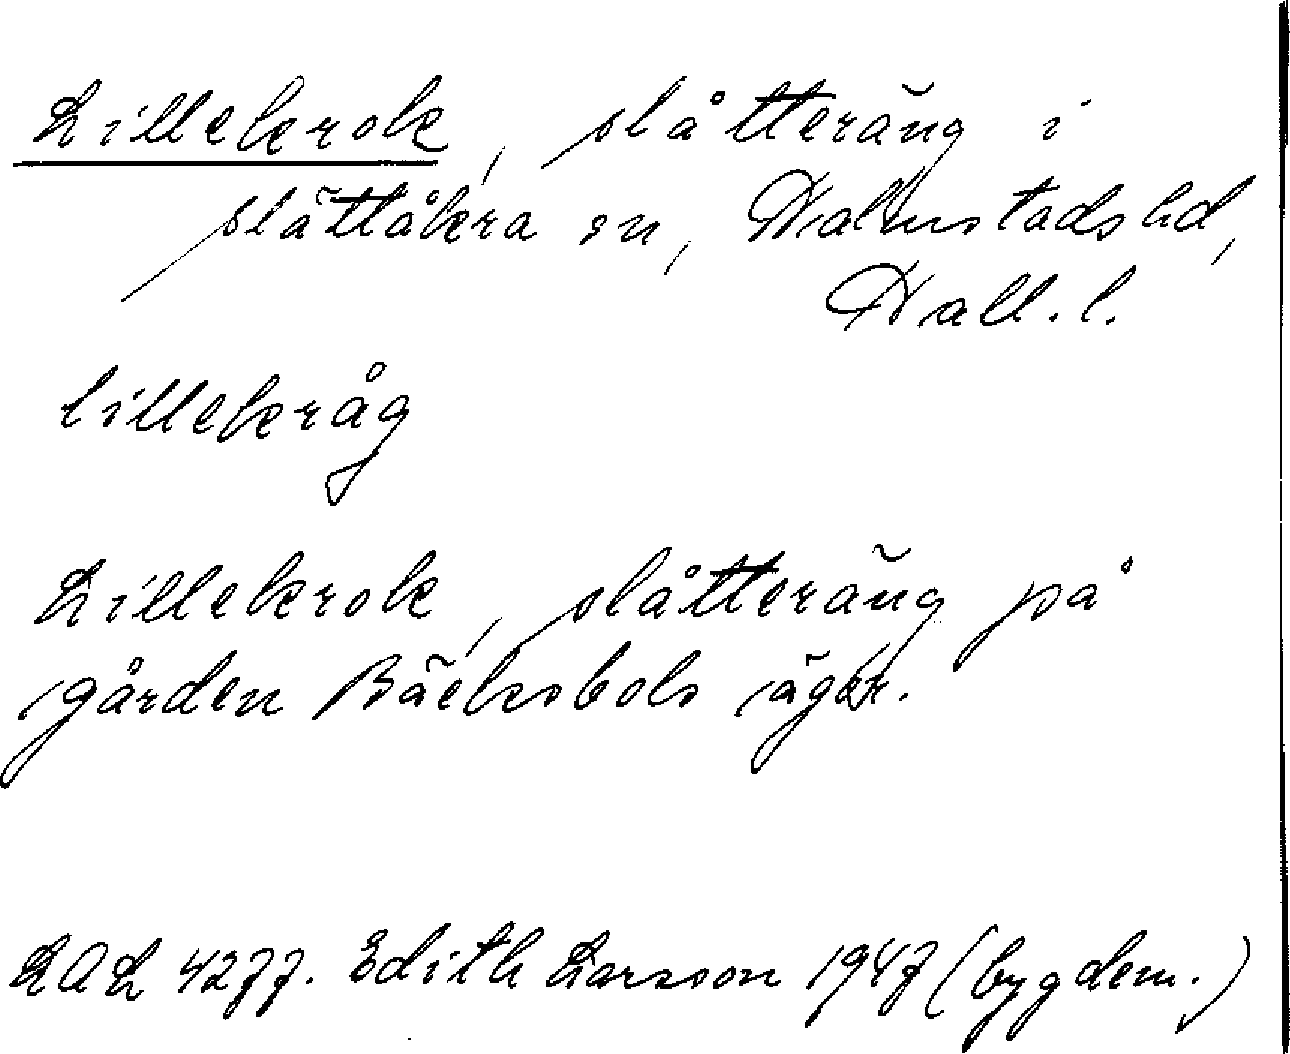 Lillekrok, slåtteräng i
Slättåkra sn, Halmstads hd,
Hall. l.
lillekråg
Lillekrok, slåtteräng på
gården Bäcksbols ägor.
LAL 4277. Edith Larsson 1947 (bygdem.)